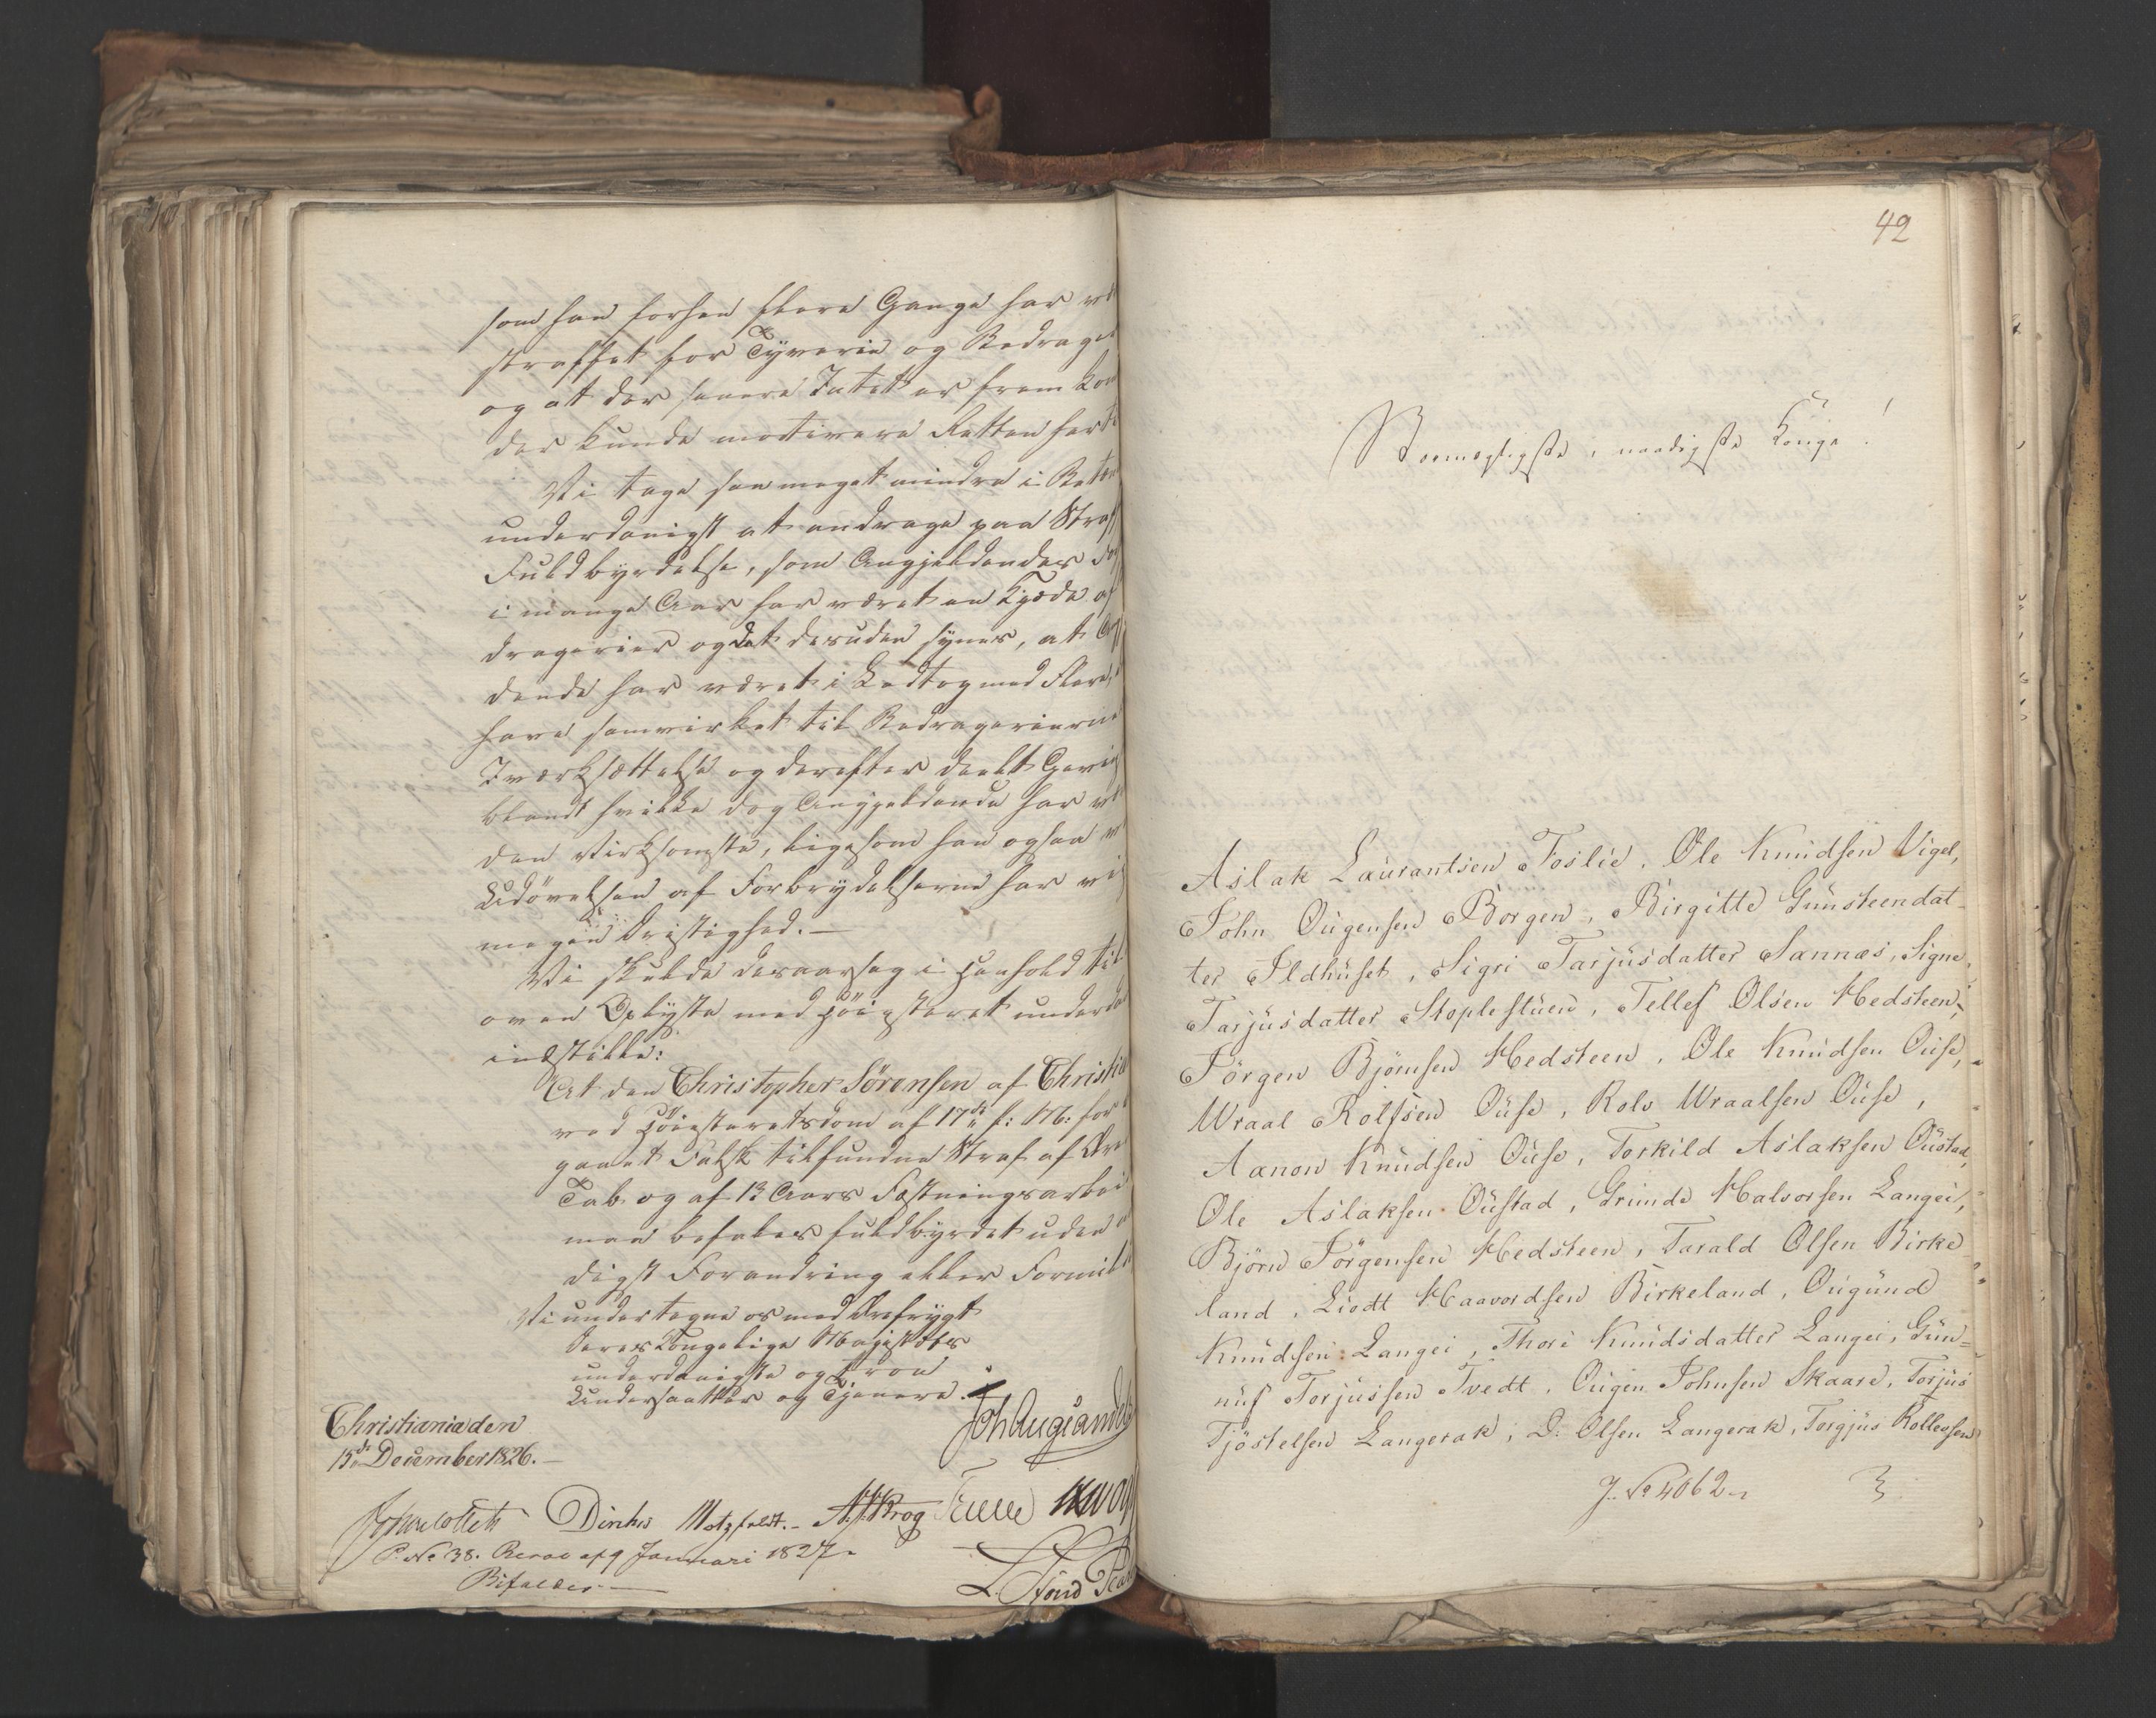 som han forhen flere Gange har væ
straffet for Tyverie og Bedrager
og at der senere Intet er frem kom
der kunde motivere Retten herti
Vi tage saa meget mindre i Betæn
underdanigst at andrage paa Straff
Fuldbyrdelse, som Angjeldendes
i mange Aar har været en Kjæde af
dragerier og det desuden synes, at Ang
dende har været i Ledtog med Flere,
have samvirket til Bedragerierne
Iværksættelse og derefter deelt Gevin
blandt hvilke dog Angjeldende har væ
den Virksomste, ligesom han ogsaa v
Udøvelsen af Forbrydelserne har vi
megen Dristighed. —
Vi skulde desaarsag i Henhold til
oven Oplyste med Høiesteret underda
indstille:
At den Christopher Sørensen af Christia
ved Høiesteretsdom af 17de f: M: for
gaaet Falsk tilfundne Straf af Ære
Tab og af 13 Aars Fæstningsarbei
maa befales fuldbyrdet uden
digst Forandring eller Formild
Vi undertegne os med Ærefrygt
Deres Kongelige Majestæts
underdanigste og troe
Undersaatter og Tjenere.
Christiania den
15de December 1826. —
Joh Aug Sande
Jonas Collett Diriks Motzfeldt. A. J. Krog Treschow
P. No 38. Resol. af 9 Januari 1827.
Bifaldes.
42
Stormægtigste, naadigste Konge!
Aslak Laurantsen Foslie, Ole Knudsen Vigel,
John Ougensen Borgen, Birgitte Gunsteendat-
ter Ildhuset, Sigri Tarjusdatter Sannæs, Signe
Tarjusdatter Stoplestuen, Tellef Olsen Hedsteen,
Jörgen Bjørnsen Hedsteen, Ole Knudsen Ouse,
Wraal Rolfsen Ouse, Rolv Wraalsen Ouse,
Aanon Knudsen Ouse, Torkild Aslaksen Oustad,
Ole Aslaksen Oustad, Grunde Halvorsen Langei,
Bjørn Jörgensen Hedsteen, Tarald Olsen Birke
land, Liodt Haavordsen Birkeland, Ougund
Knudsen Langei, Thore Knudsdatter Langei, Gun=
nuf Torjussen Tvedt, Ougen Johnsen Skaare, Torjus
Tjöstelsen Langerak, D: Olsen Langerak, Torgjus Rollevsen
J. No 4062
3